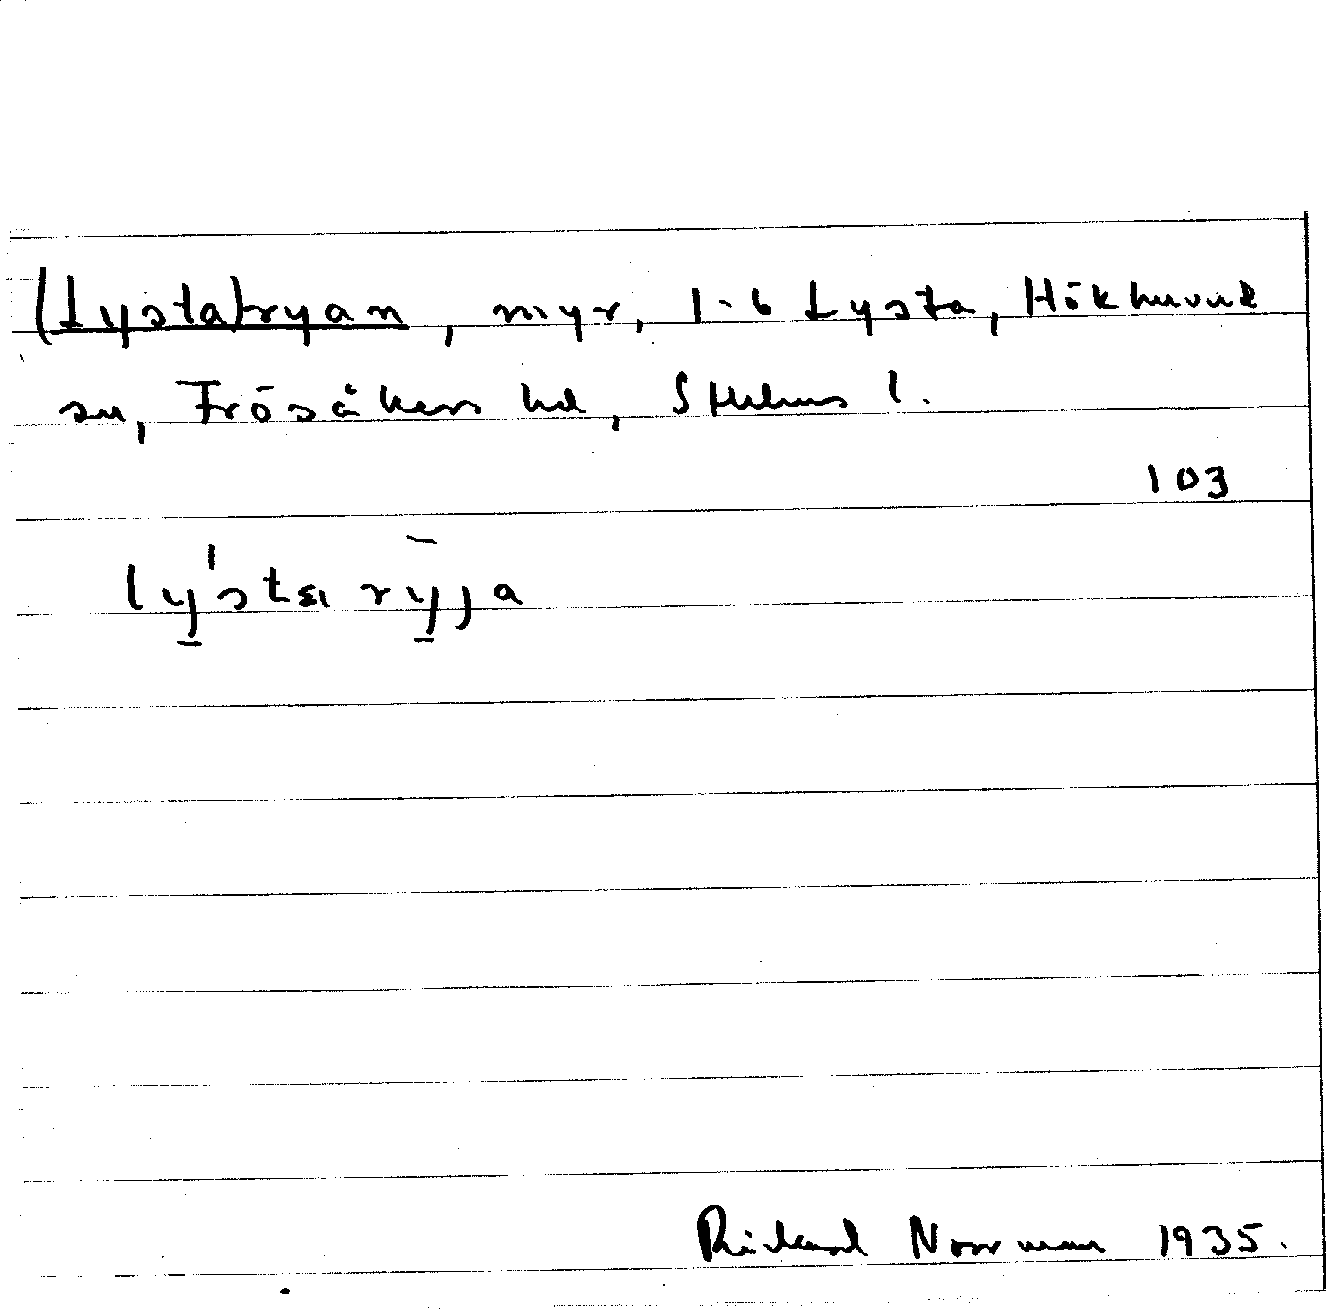 (Lysta)ryan, myr, 1-6 Lysta, Hökhuvud
sn, Frösåkers hd, Sthlms l.
103
ly'sta rȳja
Rickard Norrman 1935.